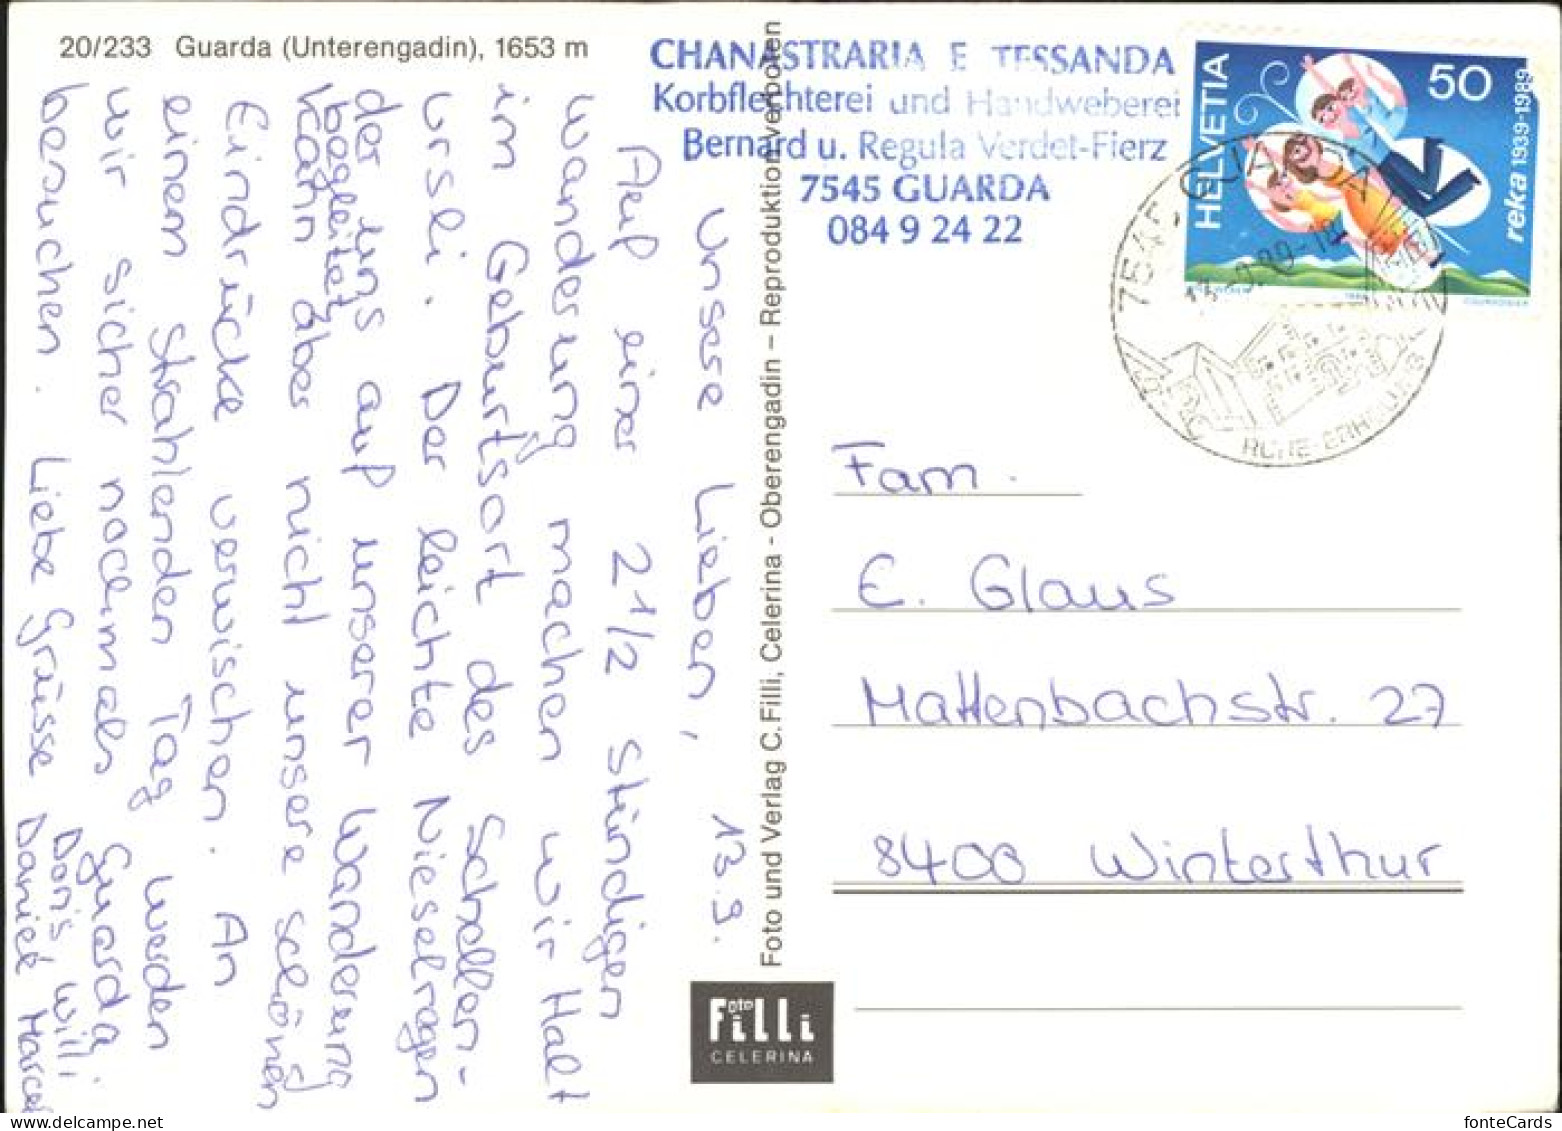 20/233 Guarda (Unterengadin), 1653 m
CHANASTRARIA E TESSANDA
Korbflechterei und Handweberei
Bernard u. Regula Verdet-Fierz
7545 GUARDA
084 9 24 22
HELVETIA
50
reka 1939-1989
COURVOISIER
7545 GUARDA
13.-9.89-18
RUHE-ERHOLUNG
Unsere Lieben, 13.9.
Auf einer 2 1/2 stündigen
Wanderung machen wir Halt
im Geburtsort des Schellen-
Ursli. Der leichte Nieselregen
der uns auf unserer Wanderung
begleitet
kann aber nicht unsere schönen
Eindrücke verwischen. An
einem strahlenden Tag werden
wir sicher nocermals Guarda
besuchen. Liebe Grüsse Doris Willi
Daniel Marcel
Foto und Verlag C. Filli, Celerina - Oberengadin – Reproduktion verboten
Fam.
E. Glaus
Mattenbachstr. 27
8400 Winterthur
Foto
Filli
CELERINA
delcampe.net
fonteCards